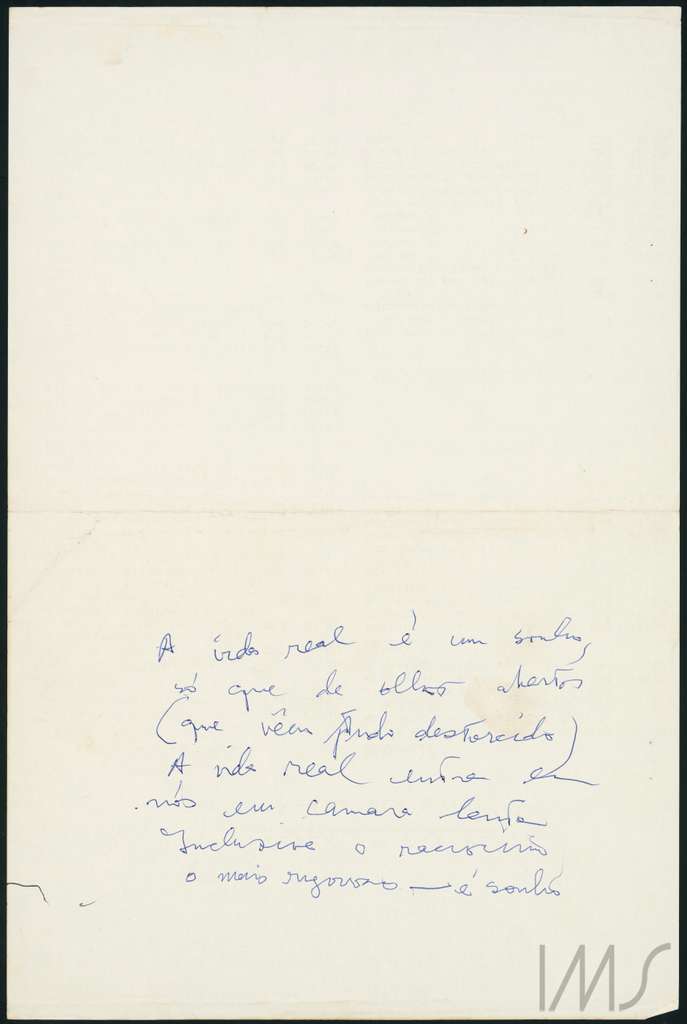 A vida real é um sonho,
só que de olhos abertos
(que vêem tudo destorcido)
A vida real entra em
nós em camara lenta
Inclusive o raciocínio
o mais rigoroso — é sonho
IMS